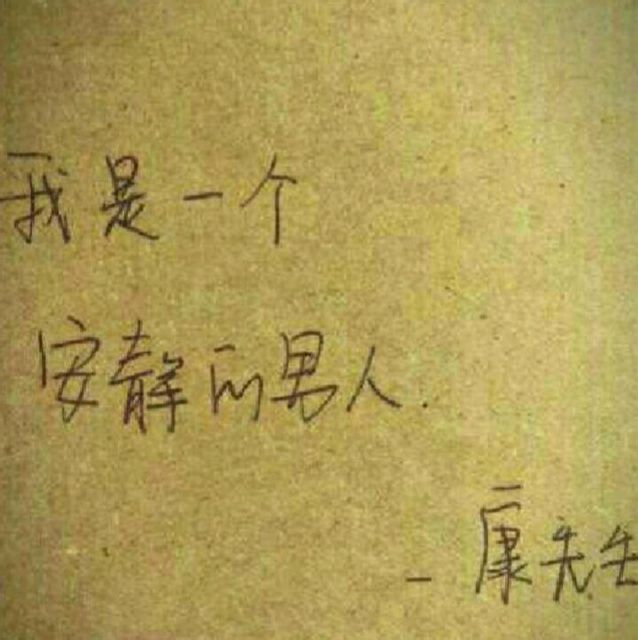 我是一个
安静的男人.
- 康先生